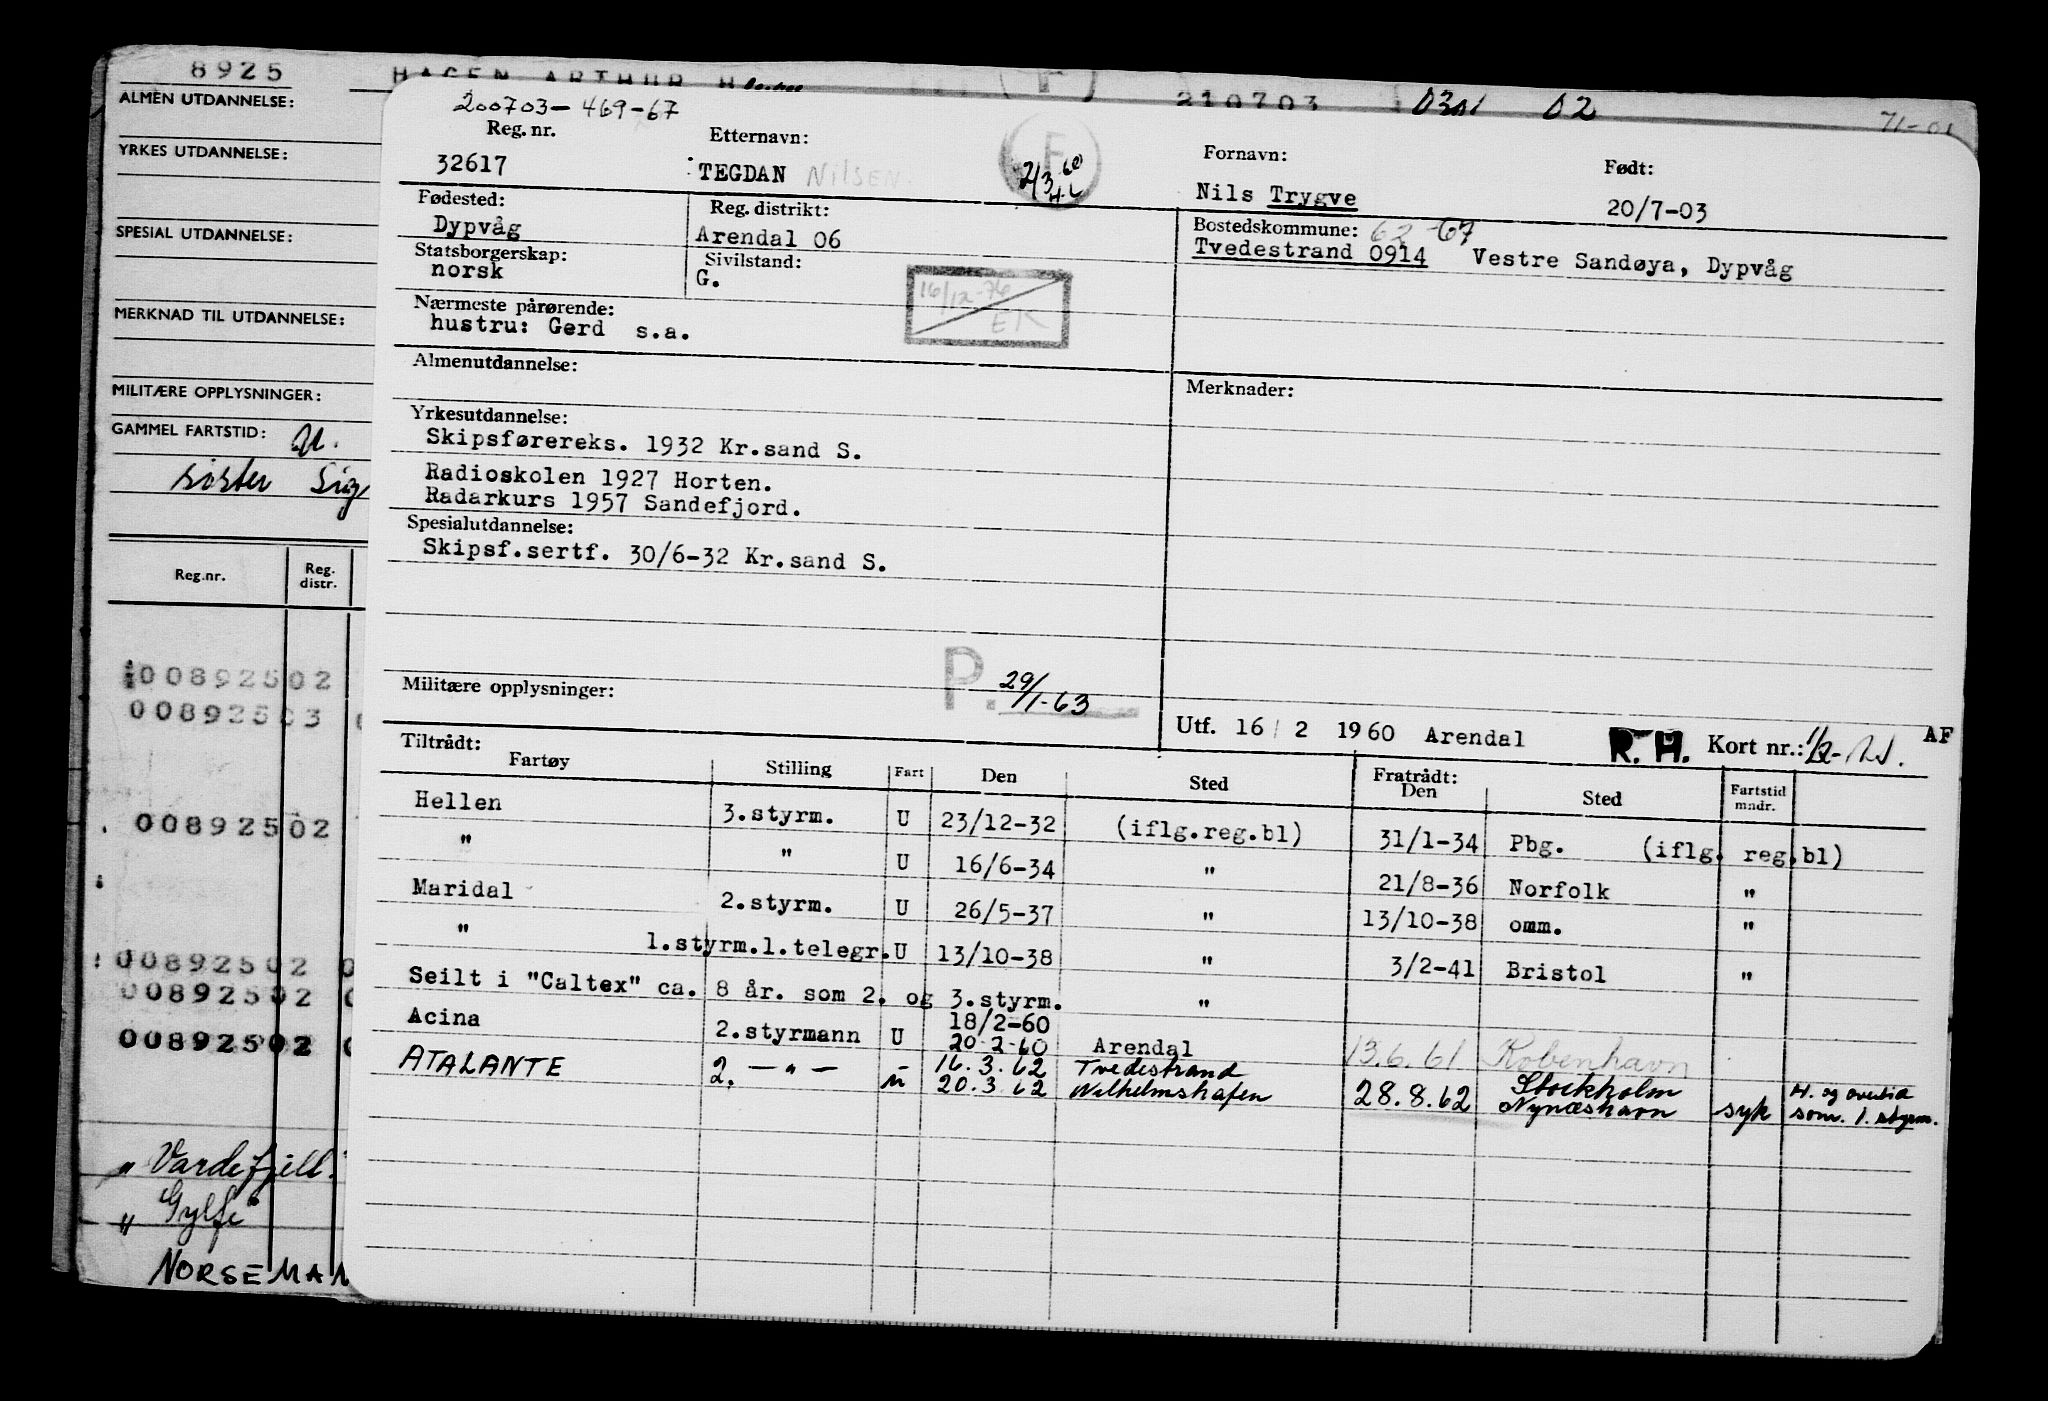 8925 HAGEN ARTHUR 210703 0301 02 71-01
ALMEN UTDANNELSE:
YRKES UTDANNELSE:
SPESIAL UTDANNELSE:
MERKNAD TIL UTDANNELSE:
MILITÆRE OPPLYSNINGER:
GAMMEL FARTSTID:
søster Sig
Reg.nr. Reg. distr.
00892502
00892503
00892502
00892502
00892502
00892502
" Vardefjell"
" Gylfe"
NORSEMAN
200703-469-67
Reg. nr. Etternavn: F Fornavn: Født:
32617 TEGDAN Nilsen 2/3 60 Nils Trygve 20/7-03
Fødested: Reg. distrikt: Bostedskommune: 62-67
Dypvåg Arendal 06 Tvedestrand 0914 Vestre Sandøya, Dypvåg
Statsborgerskap: Sivilstand:
norsk G.
16/12-76 EK
Nærmeste pårørende:
hustru: Gerd s.a.
Almenutdannelse: Merknader:
Yrkesutdannelse:
Skipsførereks. 1932 Kr.sand S.
Radioskolen 1927 Horten.
Radarkurs 1957 Sandefjord.
Spesialutdannelse:
Skipsf.sertf. 30/6-32 Kr.sand S.
Militære opplysninger: P. 29/1-63
Utf. 16/2 1960 Arendal R.H. Kort nr.: AF
Tiltrådt: Fratrådt:
Fartøy Stilling Fart Den Sted Den Sted Fartstid mndr.
Hellen 3.styrm. U 23/12-32 (iflg.reg.bl) 31/1-34 Pbg. (iflg. reg.bl)
" " U 16/6-34 " 21/8-36 Norfolk "
Maridal 2.styrm. U 26/5-37 " 13/10-38 omm. "
" 1.styrm.1.telegr. U 13/10-38 " 3/2-41 Bristol "
Seilt i "Caltex" ca. 8 år. som 2. og 3.styrm. "
18/2-60
Acina 2.styrmann U 20-2-60 Arendal 13.6.61 København
16.3.62 Tvedestrand Stockholm H. og overtid
ATALANTE 2. -"- U 20.3.62 Wilhelmshafen 28.8.62 Nynæshavn syk som 1. styrm.